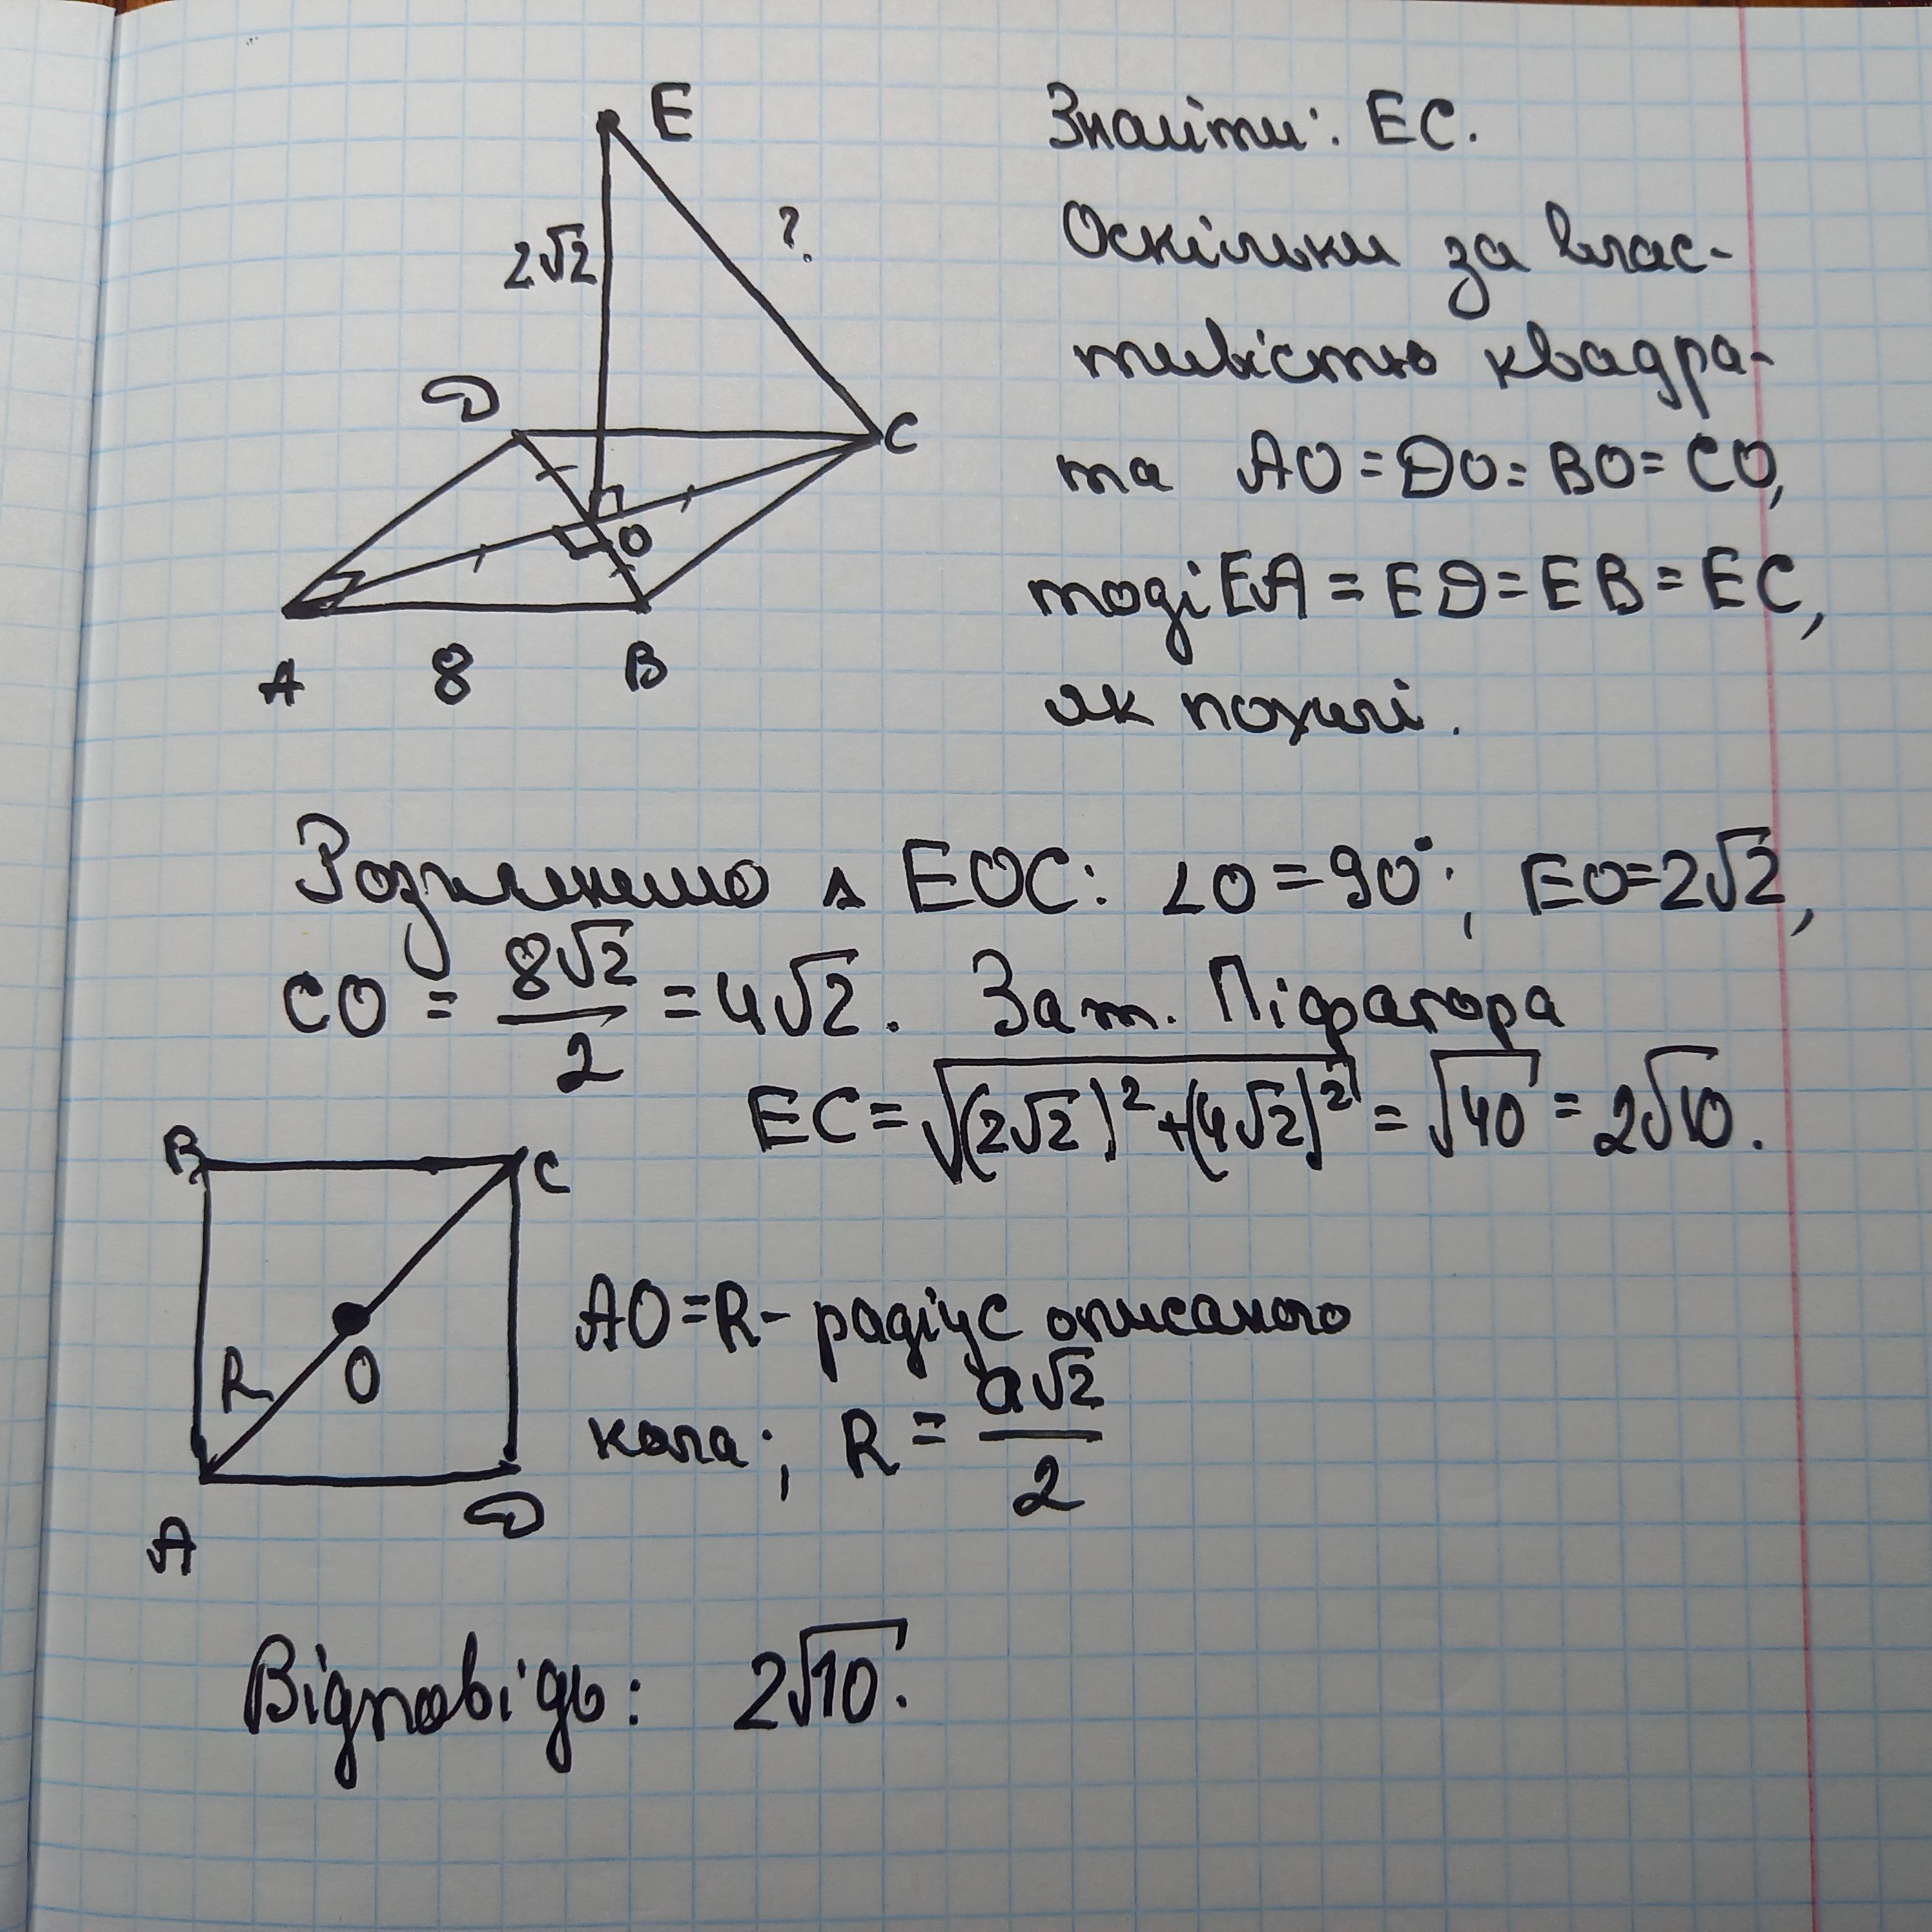 E
2√2
?
D
C
O
A 8 B
Знайти: EC.
Оскільки за влас-
тивістю квадра-
та AO=DO=BO=CO,
тоді EA=ED=EB=EC,
як похилі.
Розглянемо △ EOC: ∠O=90°; EO=2√2,
CO = 8√2/2 = 4√2. За т. Піфагора
EC=√((2√2)²+(4√2)²) = √40 = 2√10.
B C
R O
A D
AO=R- радіус описаного
кола; R = a√2/2
Відповідь: 2√10.